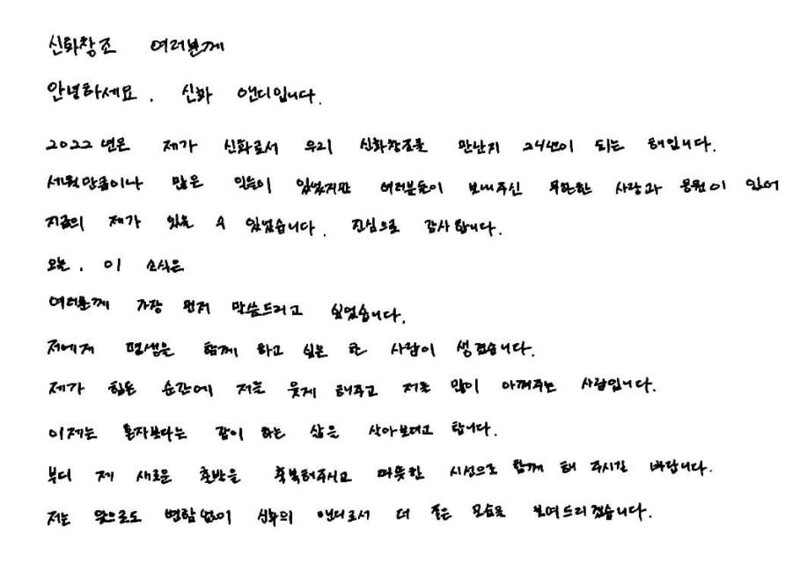 신화창조 여러분께
안녕하세요. 신화 앤디입니다.
2022년은 제가 신화로서 우리 신화창조를 만난지 24년이 되는 해입니다.
세월만큼이나 많은 일들이 있었지만 여러분들이 보내주신 무한한 사랑과 응원이 있어
지금의 제가 있을 수 있었습니다. 진심으로 감사합니다.
오늘. 이 소식은
여러분께 가장 먼저 말씀드리고 싶었습니다.
저에게 평생을 함께 하고 싶은 한 사람이 생겼습니다.
제가 힘든 순간에 저를 웃게 해주고 저를 많이 아껴주는 사람입니다.
이제는 혼자보다는 같이 하는 삶을 살아보려고 합니다.
부디 제 새로운 출발을 축복해주시고 따뜻한 시선으로 함께 해 주시길 바랍니다.
저는 앞으로도 변함없이 신화의 앤디로서 더 좋은 모습을 보여드리겠습니다.